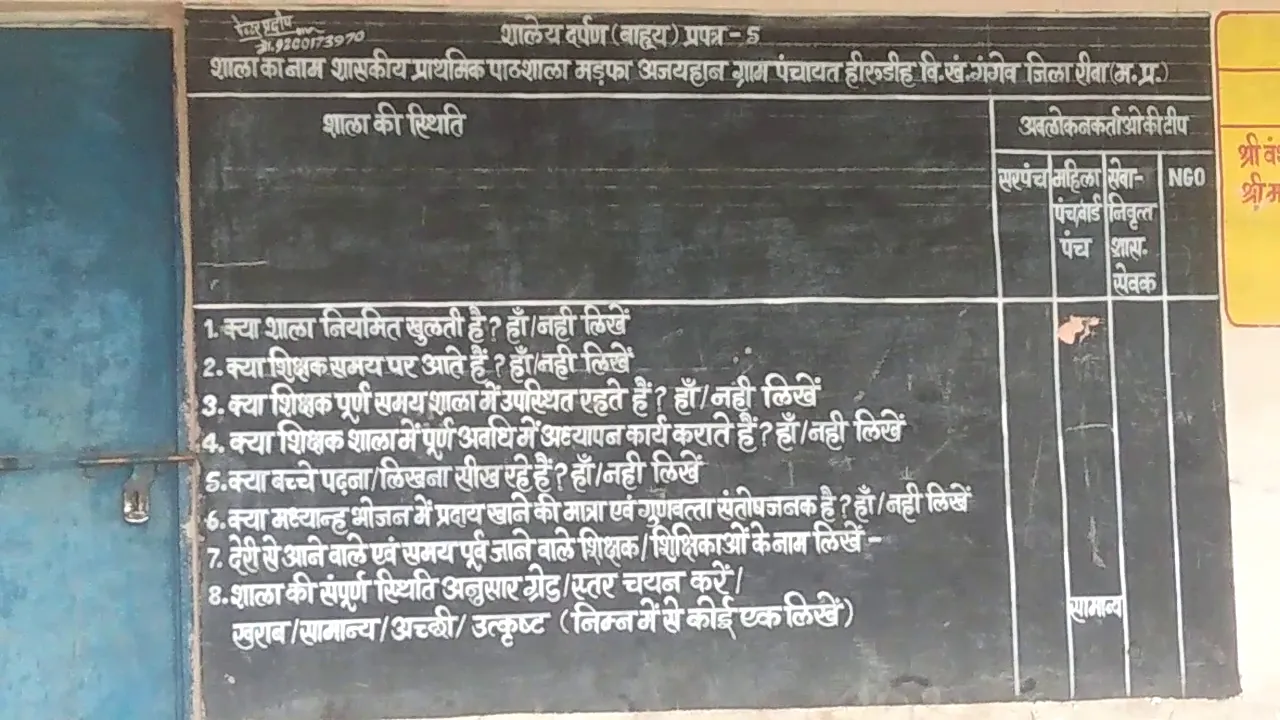 पेन्टर प्रदीप
मो.9200173970
शालेय दर्पण (बाह्य) प्रपत्र - 5
शाला का नाम शासकीय प्राथमिक पाठशाला मड़फा अजयहान ग्राम पंचायत हीरूडीह वि.खं.गंगेव जिला रीवा (म.प्र.)
शाला की स्थिति
अवलोकनकर्ताओ की टीप
सरपंच
महिला
पंच/वार्ड
पंच
सेवा-
निवृत्त
शास.
सेवक
NGO
1. क्या शाला नियमित खुलती है ? हाँ/नही लिखें
2. क्या शिक्षक समय पर आते हैं ? हाँ/नही लिखें
3. क्या शिक्षक पूर्ण समय शाला में उपस्थित रहते हैं ? हाँ/नही लिखें
4. क्या शिक्षक शाला में पूर्ण अवधि में अध्यापन कार्य कराते हैं ? हाँ/नही लिखें
5. क्या बच्चे पढ़ना/लिखना सीख रहे हैं ? हाँ/नही लिखें
6. क्या मध्यान्ह भोजन में प्रदाय खाने की मात्रा एवं गुणवत्ता संतोषजनक है ? हाँ/नही लिखें
7. देरी से आने वाले एवं समय पूर्व जाने वाले शिक्षक/शिक्षिकाओं के नाम लिखें -
8. शाला की संपूर्ण स्थिति अनुसार ग्रेड/स्तर चयन करें/
खराब/सामान्य/अच्छी/उत्कृष्ट (निम्न में से कोई एक लिखें)
सामान्य
श्री
श्री